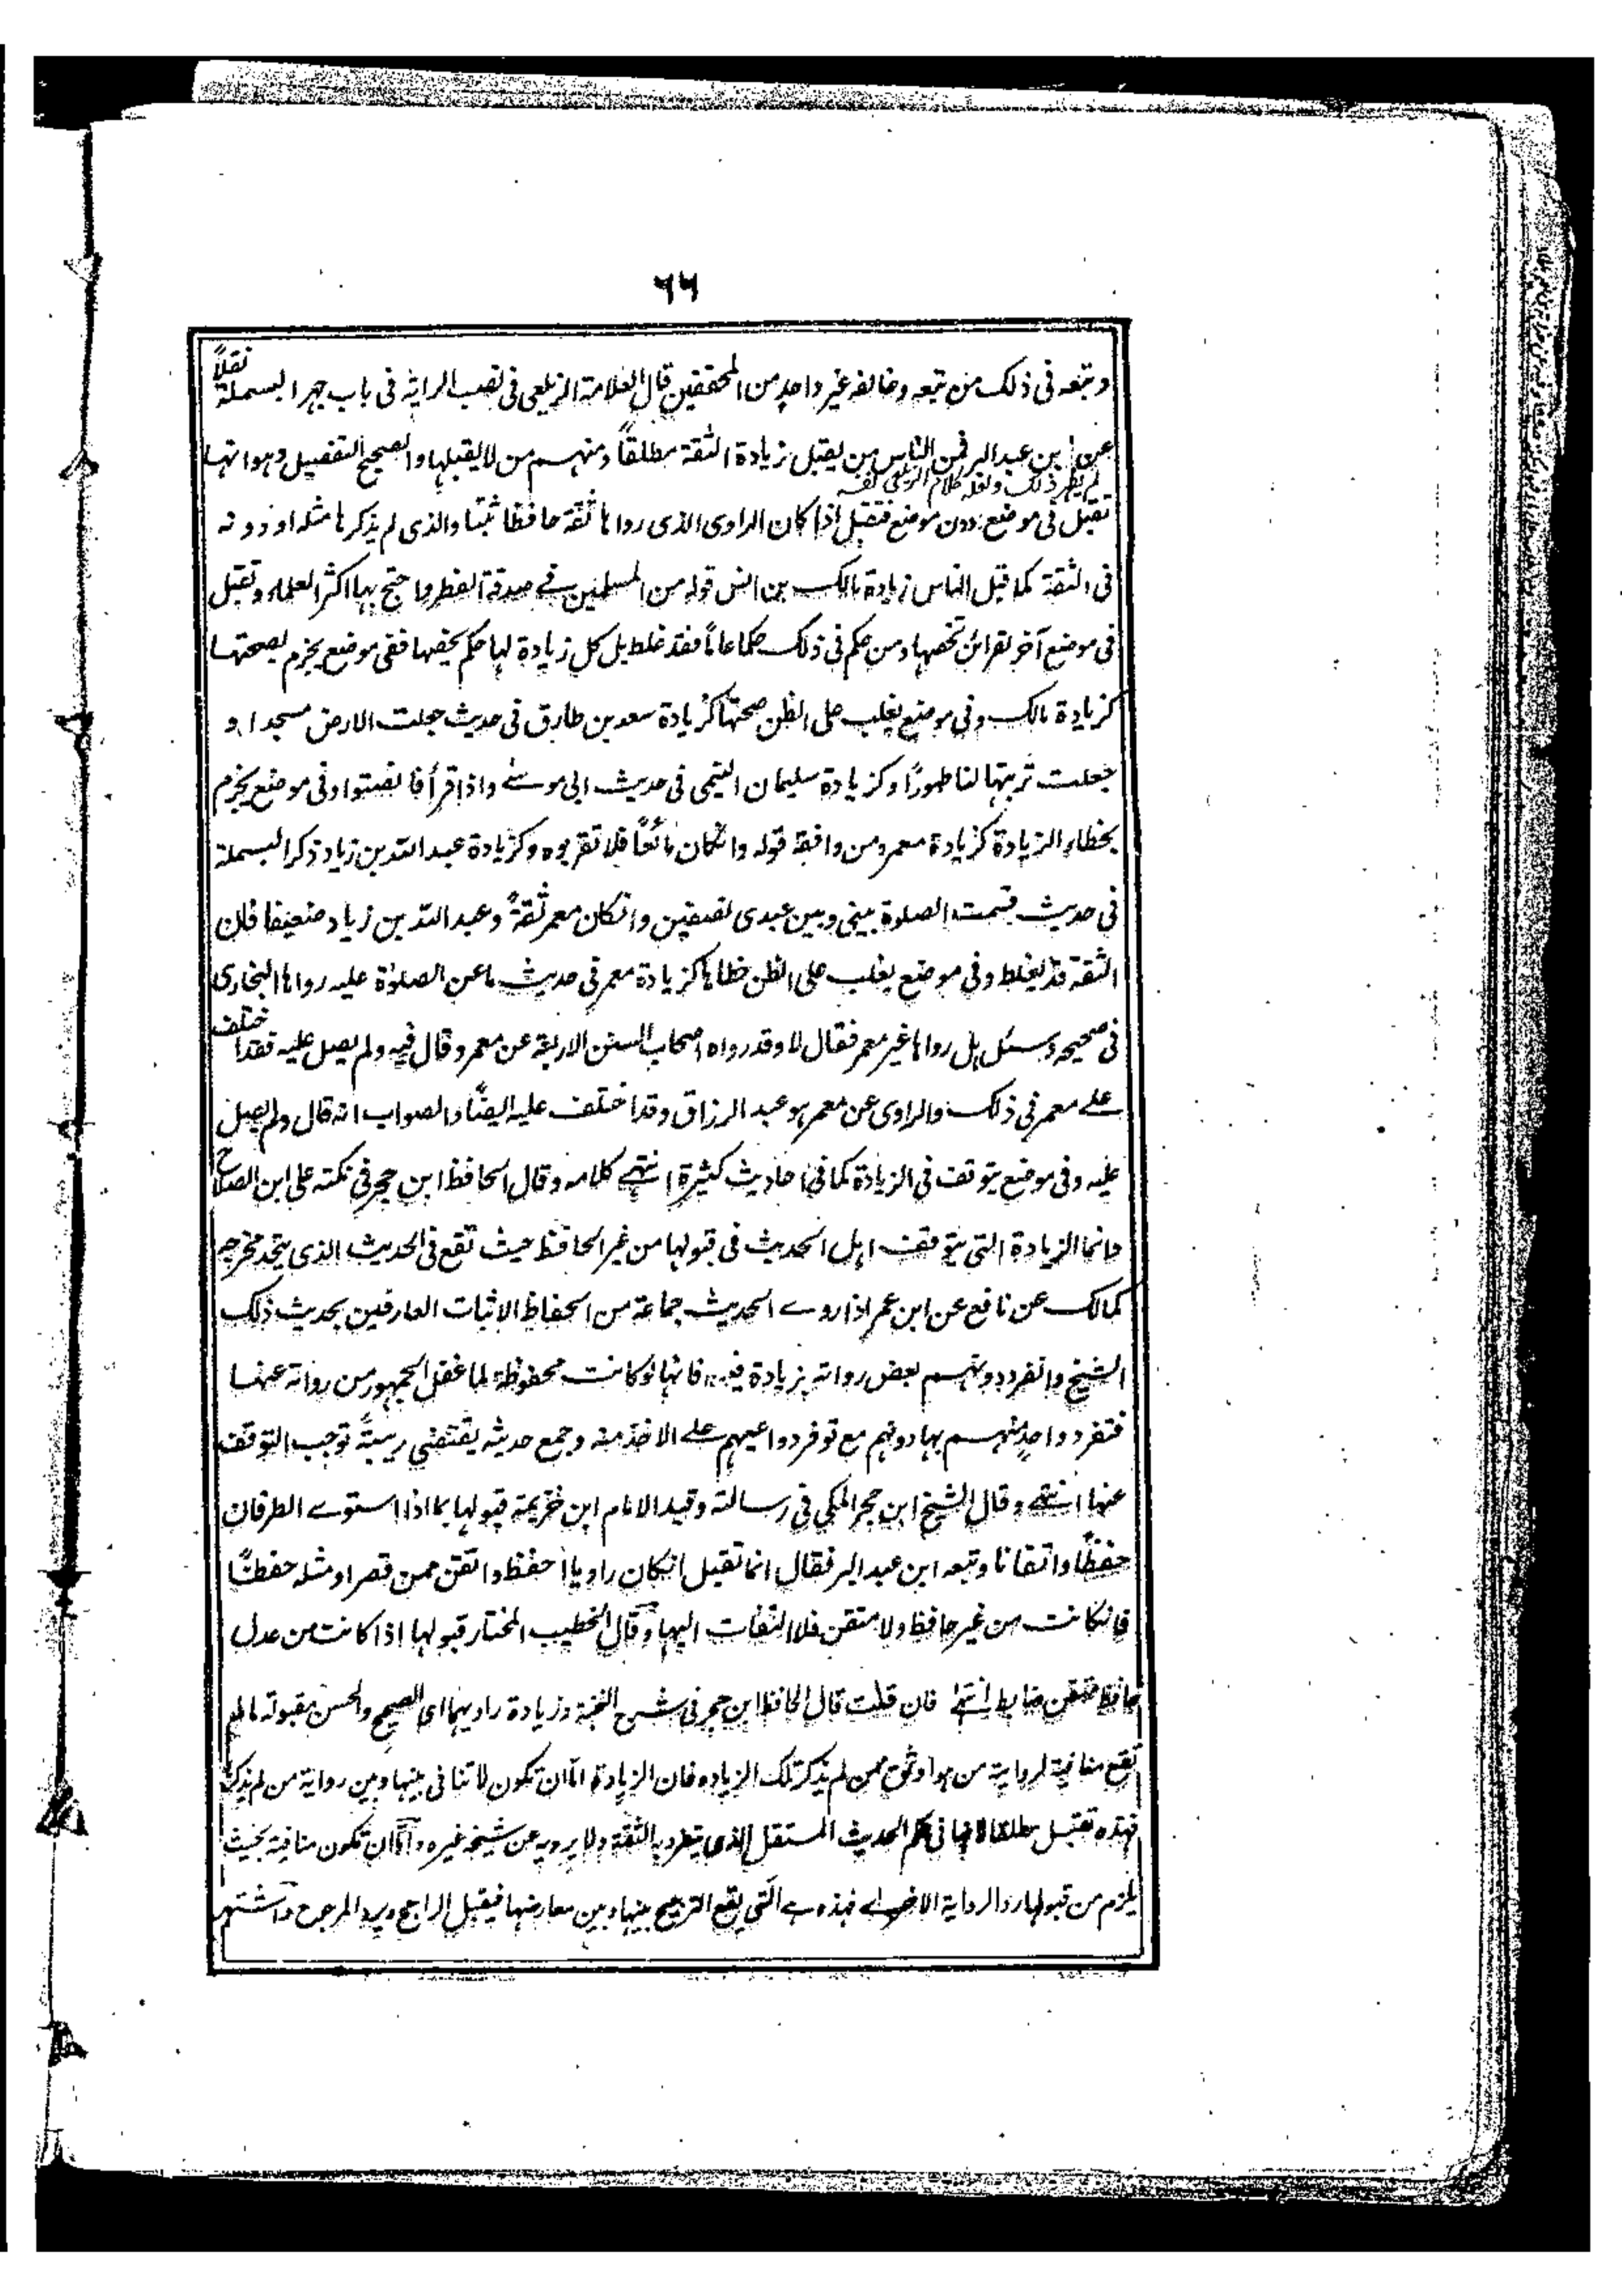 ٦٦
وتبعه فى ذلك من تبعه وخالفه غير واحد من المحققين قال العلامة الزيلعى فى نصب الراية فى باب جهر البسملة نقلاً
عن ابن عبد البر فمن الناس من يقبل زيادة الثقة مطلقاً ومنهم من لا يقبلها والصحيح التفصيل وهو انها
لم يظهر ذلك ولعله كلام الزيلعى نفسه
تقبل فى موضع دون موضع فتقبل اذا كان الراوى الذى رواها ثقة حافظا ثبتا والذى لم يذكرها مثله او دونه
فى الثقة كما قبل الناس زيادة مالك بن انس قوله من المسلمين فے صدقة الفطر واحتج بها اكثر العلماء وتقبل
فى موضع آخر لقرائن تخصها ومن حكم فى ذلك حكما عاماً فقد غلط بل كل زيادة لها حكم يخصها ففى موضع يجزم بصحتها
كزيادة مالك وفى موضع يغلب على الظن صحتها كزيادة سعد بن طارق فى حديث جعلت الارض مسجدا و
جعلت تربتها لنا طهورًا وكزيادة سليمان التيمى فى حديث ابى موسے واذا قرأ فانصتوا وفى موضع يجزم
بخطاء الزيادة كزيادة معمر ومن وافقه قوله وانكان مائعًا فلا تقربوه وكزيادة عبد الله بن زياد ذكر البسملة
فى حديث قسمت الصلوة بينى وبين عبدى نصفين وانكان معمر ثقةً وعبد الله بن زياد ضعيفا فان
الثقة قد يغلط وفى موضع يغلب على الظن خطاها كزيادة معمر فى حديث ماعز الصلوٰة عليه رواها البخارى
فى صحيحه وسئل هل رواها غير معمر فقال لا وقد رواه اصحاب السنن الاربعة عن معمر وقال فيه ولم يصل عليه فقد اختلف
علے معمر فى ذلك والراوى عن معمر هو عبد الرزاق وقد اختلف عليه ايضًا والصواب انه قال ولم يصل
عليه وفى موضع يتوقف فى الزيادة كما فى احاديث كثيرة انتهے كلامه وقال الحافظ ابن حجر فى نكته على ابن الصلاح
وانما الزيادة التى يتوقف اهل الحديث فى قبولها من غير الحافظ حيث تقع فى الحديث الذى يتحد مخرجه
كمالك عن نافع عن ابن عمر اذا روے الحديث جماعة من الحفاظ الاثبات العارفين بحديث ذلك
الشيخ وانفرد دونهم بعض رواته بزيادة فيه فانها لو كانت محفوظة لما غفل الجمهور من رواته عنها
فتفرد واحدٍ منهم بها دونهم مع توفر دواعيهم علے الاخذ منه وجمع حديثه يقتضى ريبةً توجب التوقف
عنها انتهے وقال الشيخ ابن حجر المكى فى رسالته وقيد الامام ابن خزيمة قبولها بما اذا استوے الطرفان
حفظًا واتقانا وتبعه ابن عبد البر فقال انما تقبل انكان راويها احفظ واتقن ممن قصر او مثله حفظًا
فانكانت من غير حافظ ولا متقن فلا التفات اليها وقال الخطيب المختار قبولها اذا كانت من عدل
حافظ متقن ضابط انتهے فان قلت قال الحافظ ابن حجر فى شرح النخبة وزيادة راويهما اى الصحيح والحسن مقبولة ما لم
تقع منافية لرواية من هو اوثق ممن لم يذكر تلك الزيادة فان الزيادة امّا ان تكون لا تنافى بينها وبين رواية من لم يذكرها
فهذه تقبل مطلقا لانها فى حكم الحديث المستقل الذى يتفرد به الثقة ولا يرويه عن شيخه غيره وامّا ان تكون منافية بحيث
يلزم من قبولها رد الرواية الاخرے فهذه هے التى يقع الترجيح بينها وبين معارضها فيقبل الراجح ويرد المرجوح واشتهر